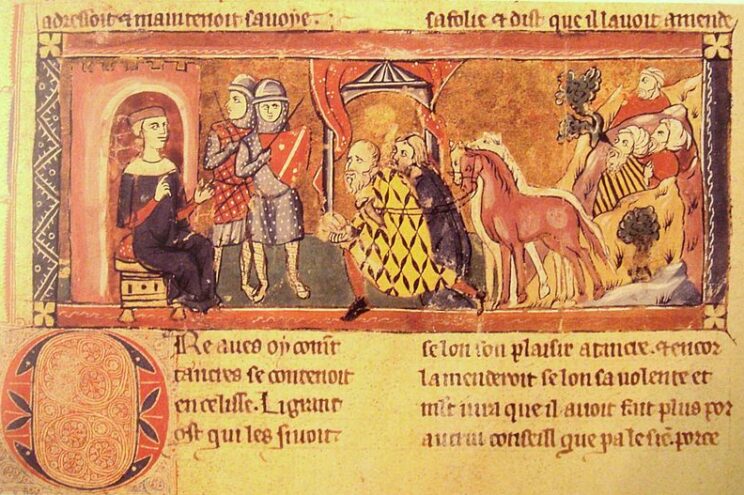 adressoit & maintenoit sauoye.
sa folie & dist que il lauoit amende
ORe aues oy comt
tancres se contenoit
en celisse. Li grant
ost qui les siuoit.
selon son plaisir a tancre. & encor
lamenderoit selon sa volente et
mlt iura que il auoit fait plus por
autrui conseill que pa le sien. porce